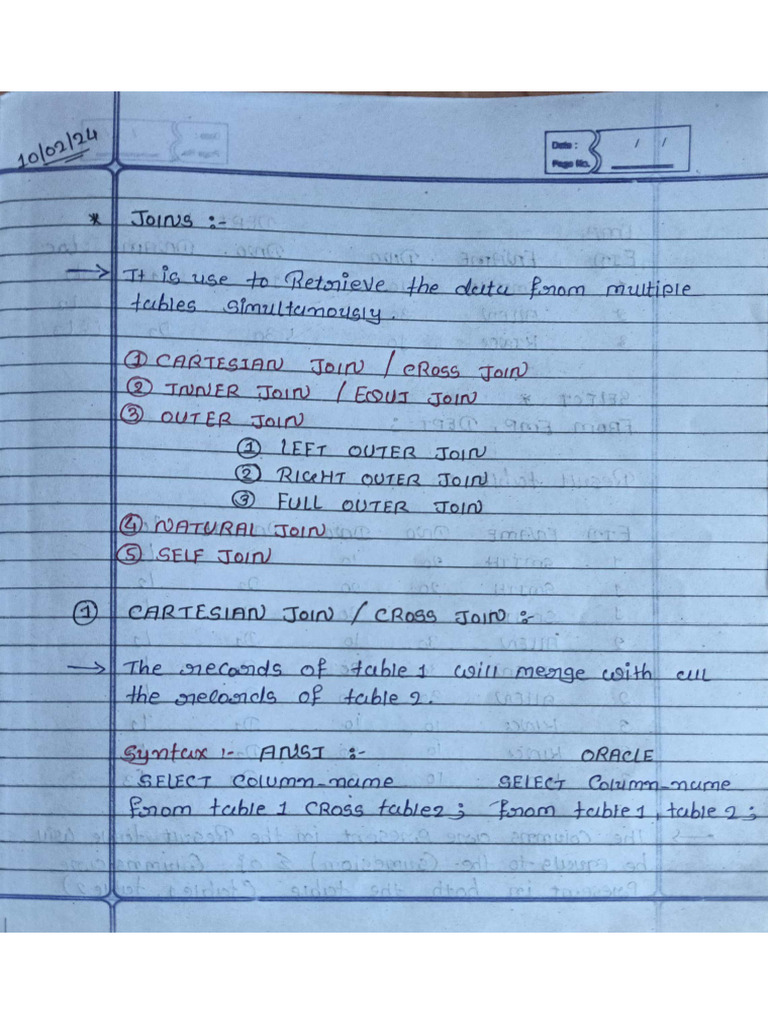 10/02/24
Date : / /
Page No.
* JOINS :-
→ It is use to Retrieve the data from multiple
tables simultanously.
① CARTESIAN JOIN / CROSS JOIN
② INNER JOIN / EQUI JOIN
③ OUTER JOIN
① LEFT OUTER JOIN
② RIGHT OUTER JOIN
③ FULL OUTER JOIN
④ NATURAL JOIN
⑤ SELF JOIN
① CARTESIAN JOIN / CROSS JOIN :-
→ The records of table 1 will merge with all
the records of table 2.
Syntax :- ANSI :- ORACLE
SELECT Column-name SELECT Column-name
from table 1 CROSS table2; from table 1, table 2;